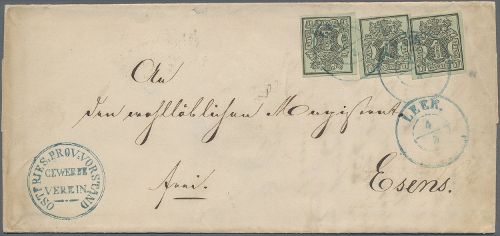 LEER.
4
An
den wohllöblichen Magistrat
OSTFRIES. PROV. VORSTAND
GEWERBE
VEREIN.
frei.
Esens.